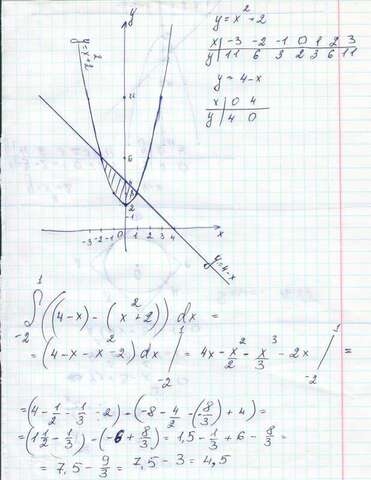 y
y = x² + 2
y = x² + 2
x | -3 -2 -1 0 1 2 3
y | 11 6 3 2 3 6 11
y = 4-x
x | 0 4
y | 4 0
11
6
4
3
2
1
-3 -2 -1 0 1 2 3 4 x
y = 4-x
∫₋₂¹ ((4-x) - (x² + 2)) dx =
= (4-x-x²-2) dx /₋₂¹ = 4x - x²/2 - x³/3 - 2x /₋₂¹ =
= (4 - 1/2 - 1/3 - 2) - (-8 - 4/2 - (-8/3) + 4) =
= (1 1/2 - 1/3) - (-6 + 8/3) = 1,5 - 1/3 + 6 - 8/3 =
= 7,5 - 9/3 = 7,5 - 3 = 4,5